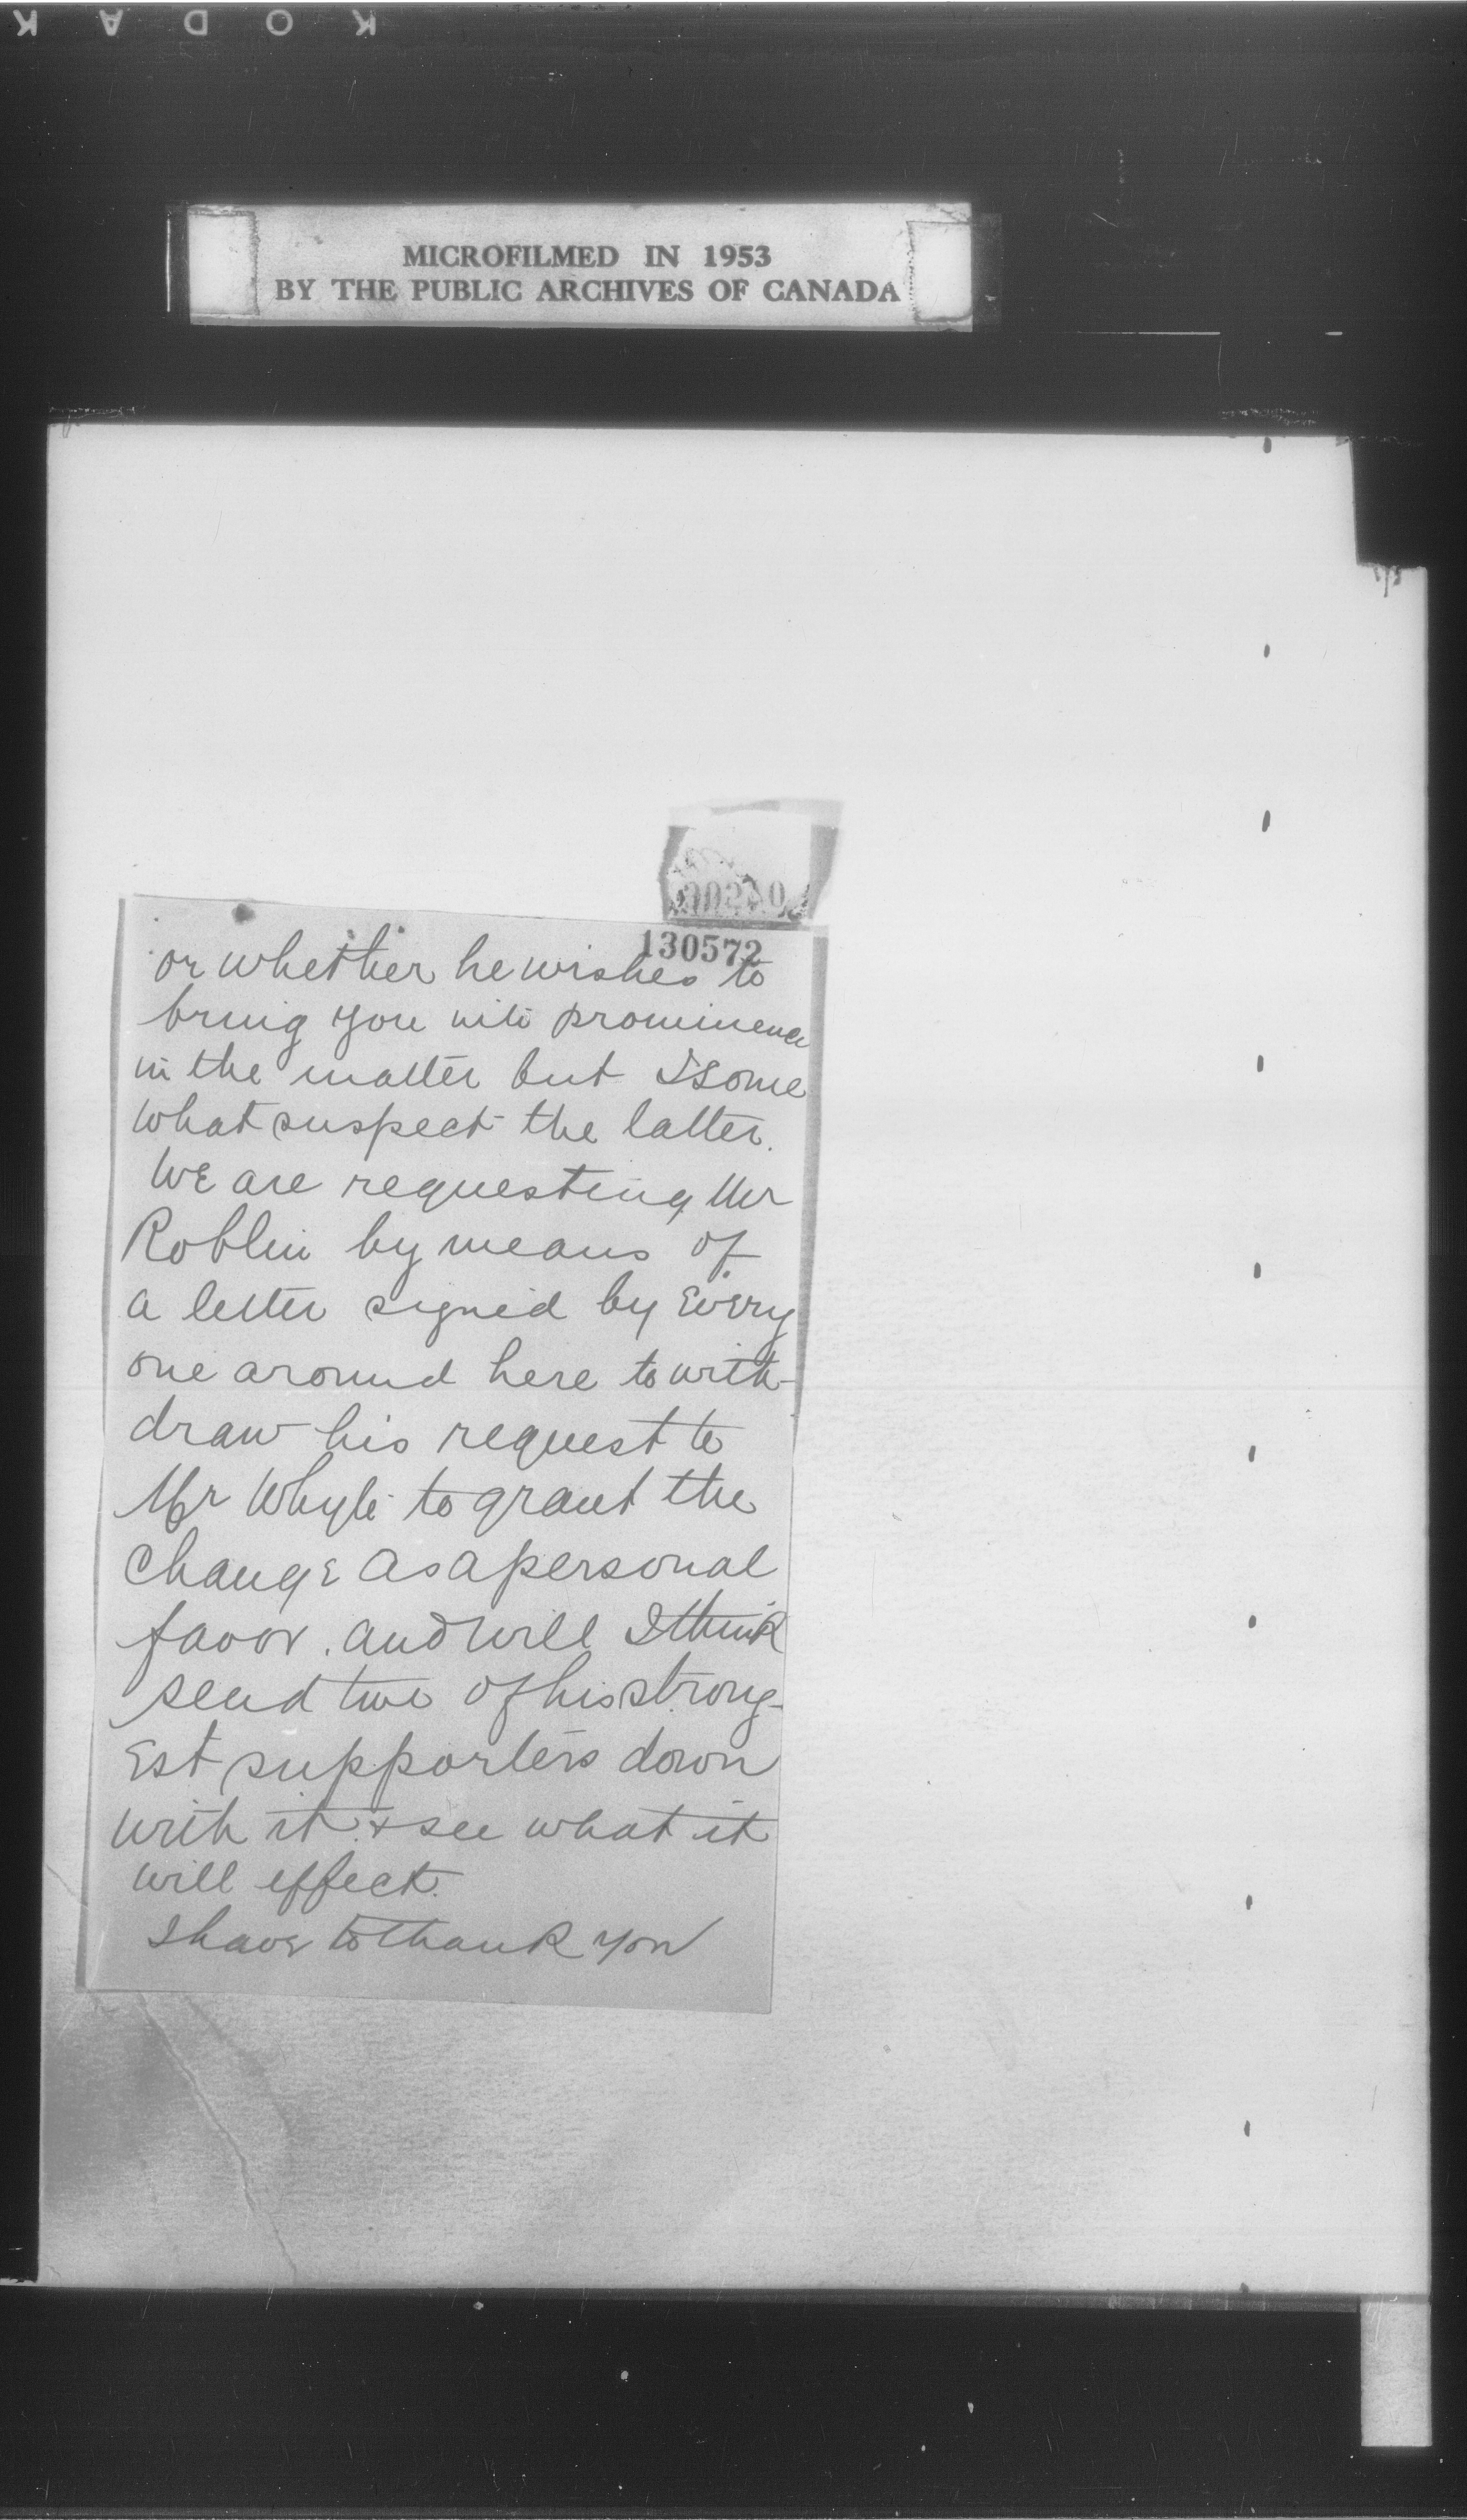 KODAK
MICROFILMED IN 1953
BY THE PUBLIC ARCHIVES OF CANADA
130572
or whether he wishes to
bring you into prominence
in the matter but I some
what suspect the latter.
We are requesting Mr
Roblin by means of
a letter signed by Every
one around here to with-
draw his request to
Mr Whyte to grant the
Change as a personal
favor. and will I think
send two of his strong-
Est supporters down
with it & see what it
will effect.
I have to thank you